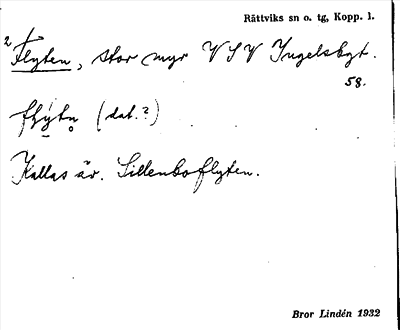 Rättviks sn o. tg, Kopp. l.
2 Flyten, stor myr VSV Ingelsbyt.
58.
flýtn̥ (dat.?)
Kallas äv. Sillenboflyten.
Bror Lindén 1932